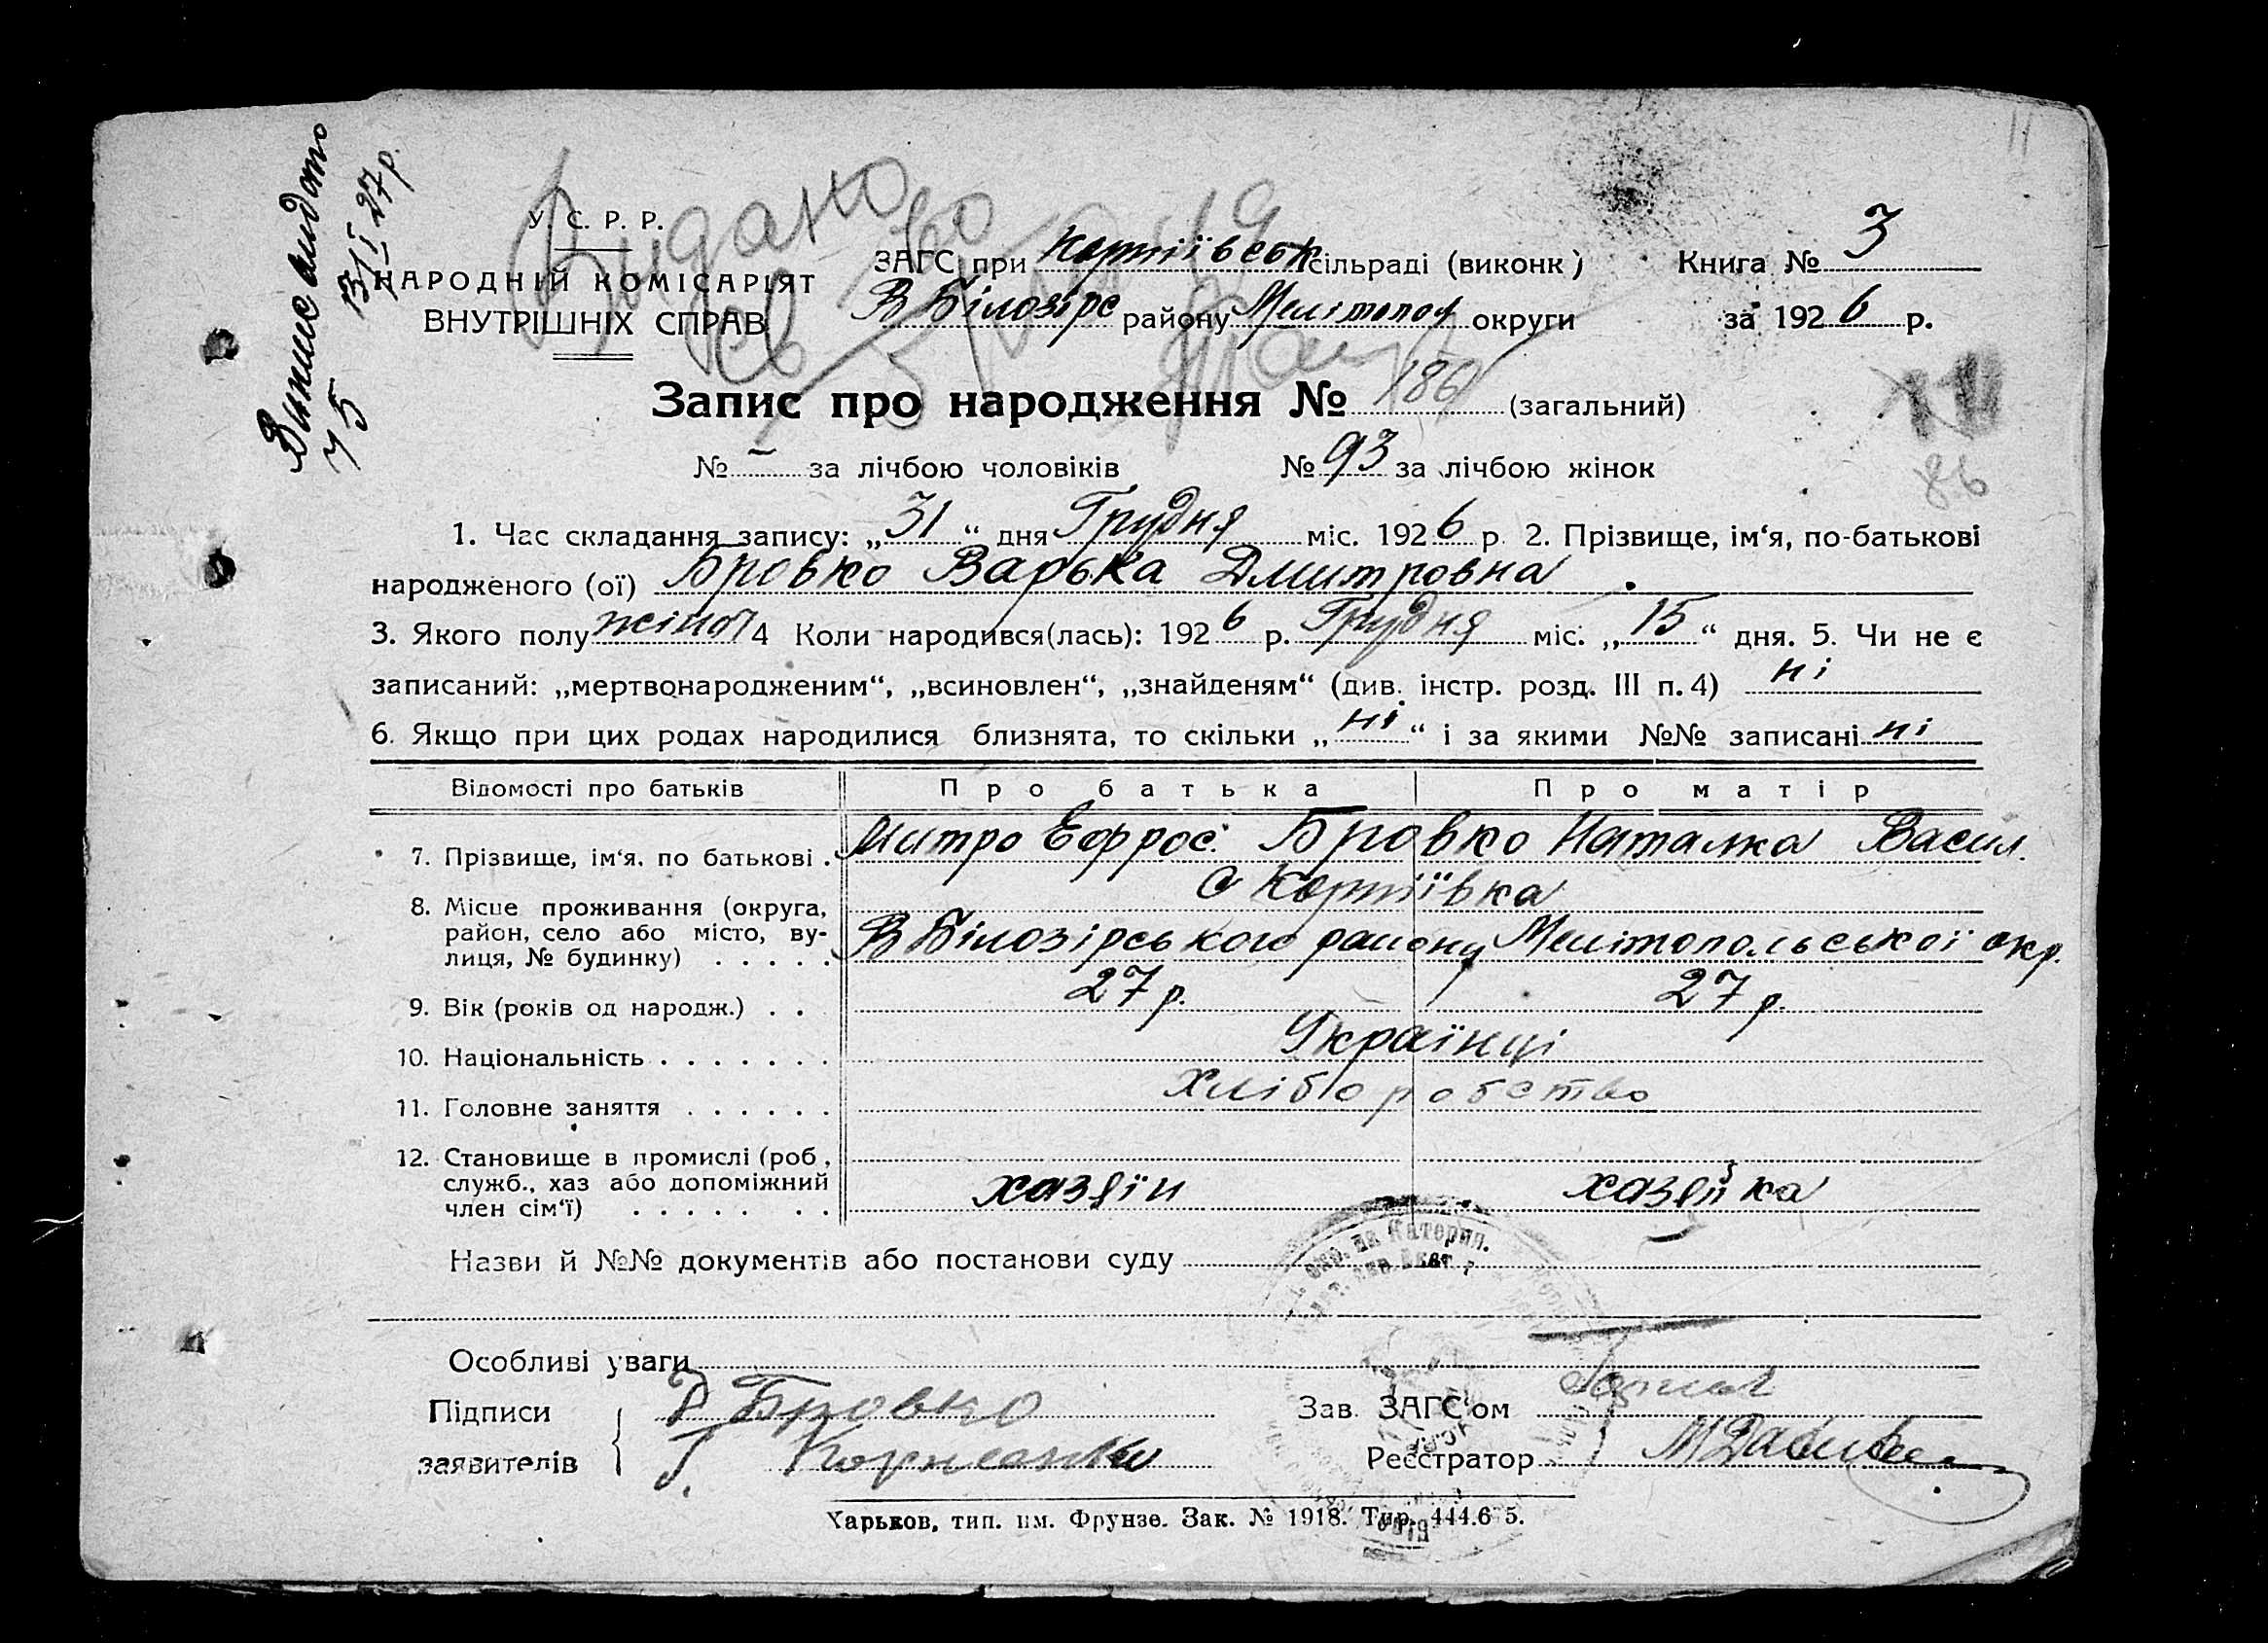 Випис видато
31/I 27 р.
75
Видано
У. С. Р. Р.
НАРОДНІЙ КОМІСАРІЯТ
ВНУТРІШНІХ СПРАВ
ЗАГС при сільраді (виконк)
В Білозірс району Мелітопол округи
Книга № 3
за 1926 р.
Запис про народження № 186 (загальний)
№ - за лічбою чоловіків № 93 за лічбою жінок
86
1. Час складання запису: „31“ дня Грудня міс. 1926 р. 2. Прізвище, ім‘я, по-батькові
народженого (ої) Бровко Варька Дмитровна
3. Якого полу жіноч 4 Коли народився(лась): 1926 р. Грудня міс. „15“ дня. 5. Чи не є
записаний: „мертвонародженим“, „всиновлен“, „знайденям“ (див. інстр. розд. III п. 4) ні
6. Якщо при цих родах народилися близнята, то скільки „ні“ і за якими №№ записані ні
Відомості про батьків Про батька Про матір
7. Прізвище, ім‘я, по батькові . Митро Ефрос. Бровко Наталка Васил.
С
8. Місце проживання (округа,
район, село або місто, ву-
лиця, № будинку) . . . . . В Білозірського району Мелітопольської окр.
9. Вік (років од народж.) . . 27 р. 27 р.
10. Національність . . . . . . . Українці
11. Головне заняття . . . . . . Хліборобство
12. Становище в промислі (роб,
служб., хаз або допоміжний
член сім‘ї) . . . . . . . хазяїн хазяйка
Назви й №№ документів або постанови суду
Особливі уваги
Підписи
заявителів
Д Бровко
Зав. ЗАГС‘ом
Реєстратор
Харьков, тип. им. Фрунзе. Зак. № 1918. Тир. 444.6 5.